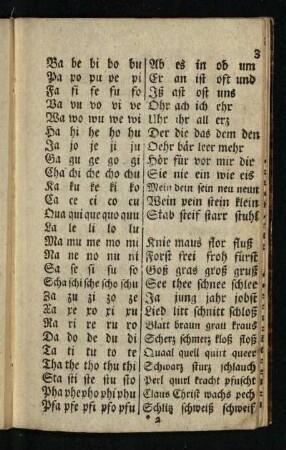 3
Ba be bi bo bu
Pa po pu pe pi
Fa fi fe fu fo
Va vu vo vi ve
Wa wo wu we wi
Ha hi he ho hu
Ja jo je ji ju
Ga gu ge go gi
Cha chi che cho chu
Ka ku ke ki ko
Ca ce ci co cu
Qua qui que quo quu
La le li lo lu
Ma mu me mo mi
Na ne no nu ni
Sa se si su so
Scha schi sche scho schu
Za zu zi zo ze
Xa xe xo xi xu
Ra ri re ru ro
Da do de du di
Ta ti tu to te
Tha the tho thu thi
Sta sti ste stu sto
Pha phe pho phi phu
Pfa pfe pfi pfo pfu
Ab es in ob um
Er an ist oft und
Iß ast ost uns
Ohr ach ich ehr
Uhr ihr all erz
Der die das dem den
Oehr bär leer mehr
Hör für vor mir dir
Sie nie ein wie eis
Mein dein sein neu neun
Wein pein stein klein
Stab steif starr stuhl
Knie maus flor fluß
Forst frei froh fürst
Goß gras groß gruß
See thee schnee schlee
Ja jung jahr jobst
Lied litt schnitt schloß
Blatt braun grau kraus
Scherz schmerz kloß floß
Quaal quell quitt queer
Schwarz sturz schlauch
Perl quirl kracht pfuscht
Claus Christ wachs pech
Schlitz schweiß schweif
* 2